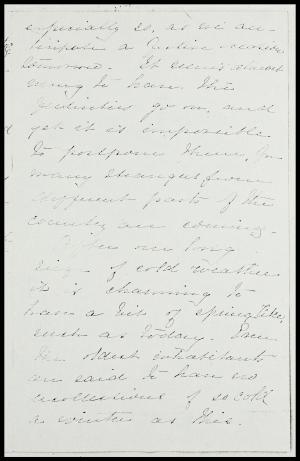 especially so, as we an-
ticipate a Native
tomorrow. It seems almost
wrong to have the
festivities go on, and
yet it is impossible
to postpone them, for
many strangers from
different parts of the
country are coming.
After our long
siege of cold weather
it is charming to
have a bit of spring like,
such as today. Even
the oldest inhabitants
are said to have no
recollections of so cold
a winter as this.